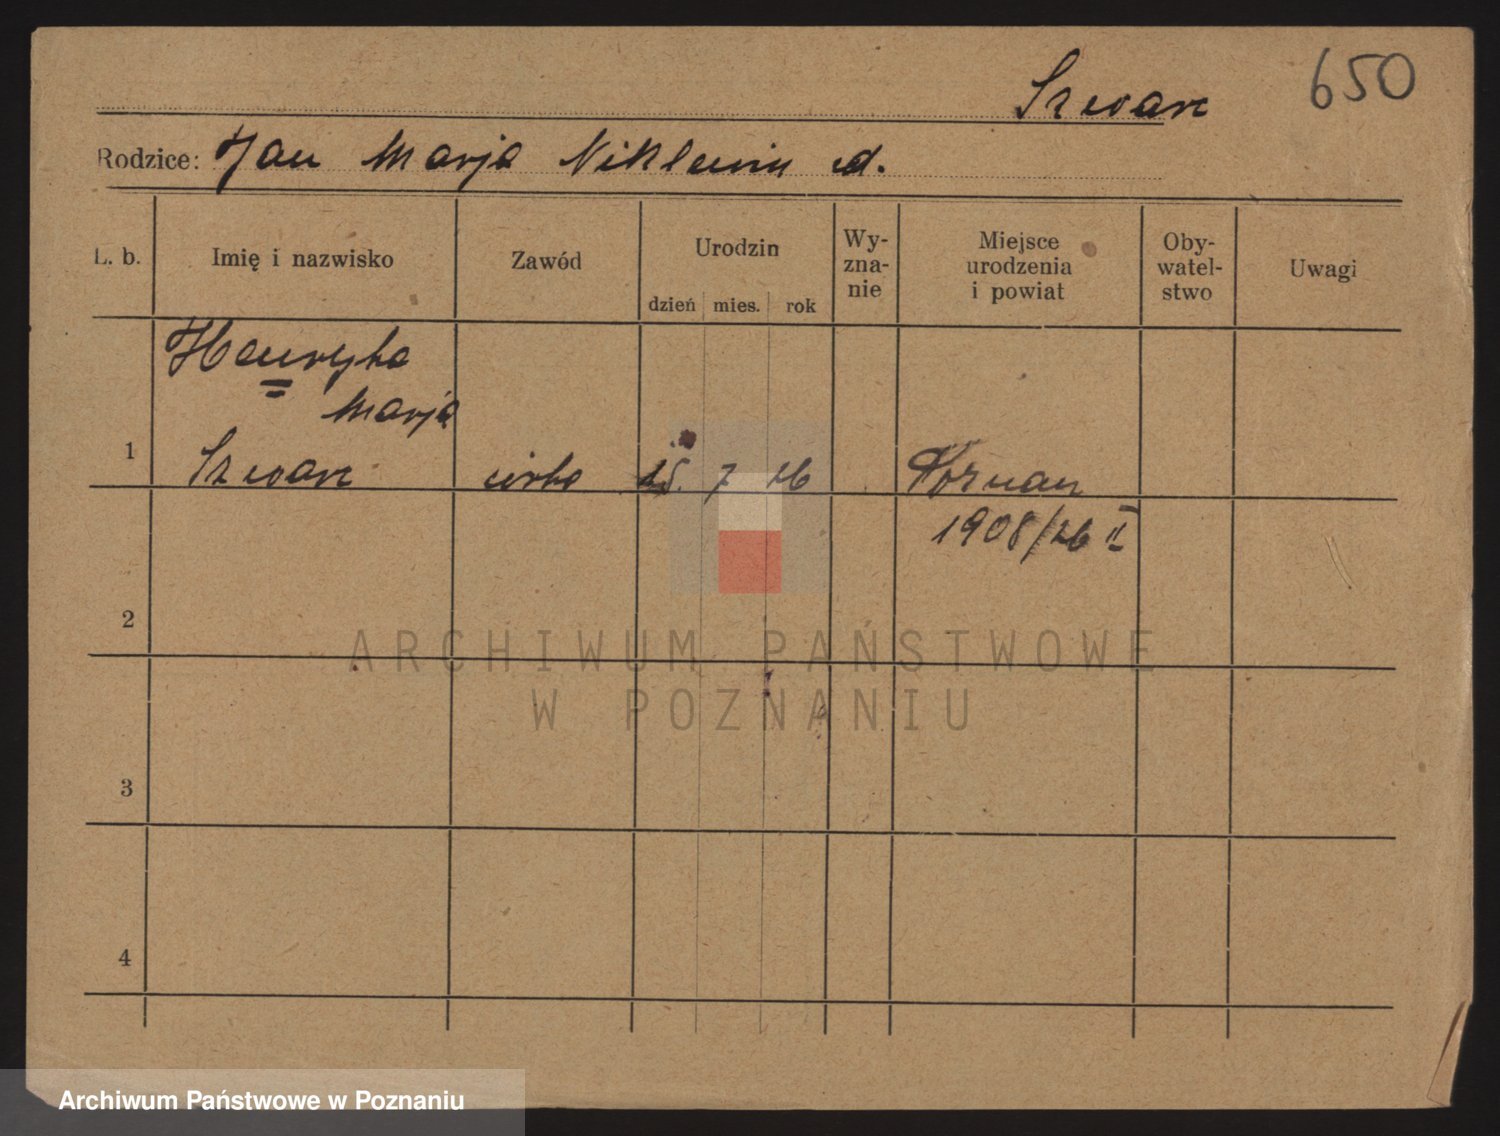 650
Szwarc
Rodzice: Jan Marja Niklewicz d.
L. b. Imię i nazwisko Zawód Urodzin dzień mies. rok Wy-zna-nie Miejsce urodzenia i powiat Oby-watel-stwo Uwagi
Henryka
Marja
1 Szwarc córka 15. 7 26 Poznan
1908/26 II
2
ARCHIWUM PAŃSTWOWE
W POZNANIU
3
4
Archiwum Państwowe w Poznaniu